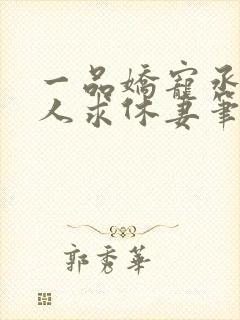 一品嬌寵丞
人求休妻筆
郭秀華